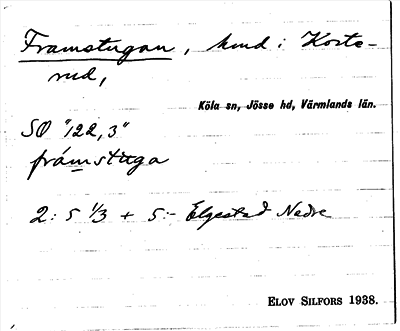 Framstugan, hmd i Korte-
rud,
Köla sn, Jösse hd, Värmlands län.
SO "122,3"
frámstuga
2: 5 1/3 + 5:- Elgestad Nedre
ELOV SILFORS 1938.